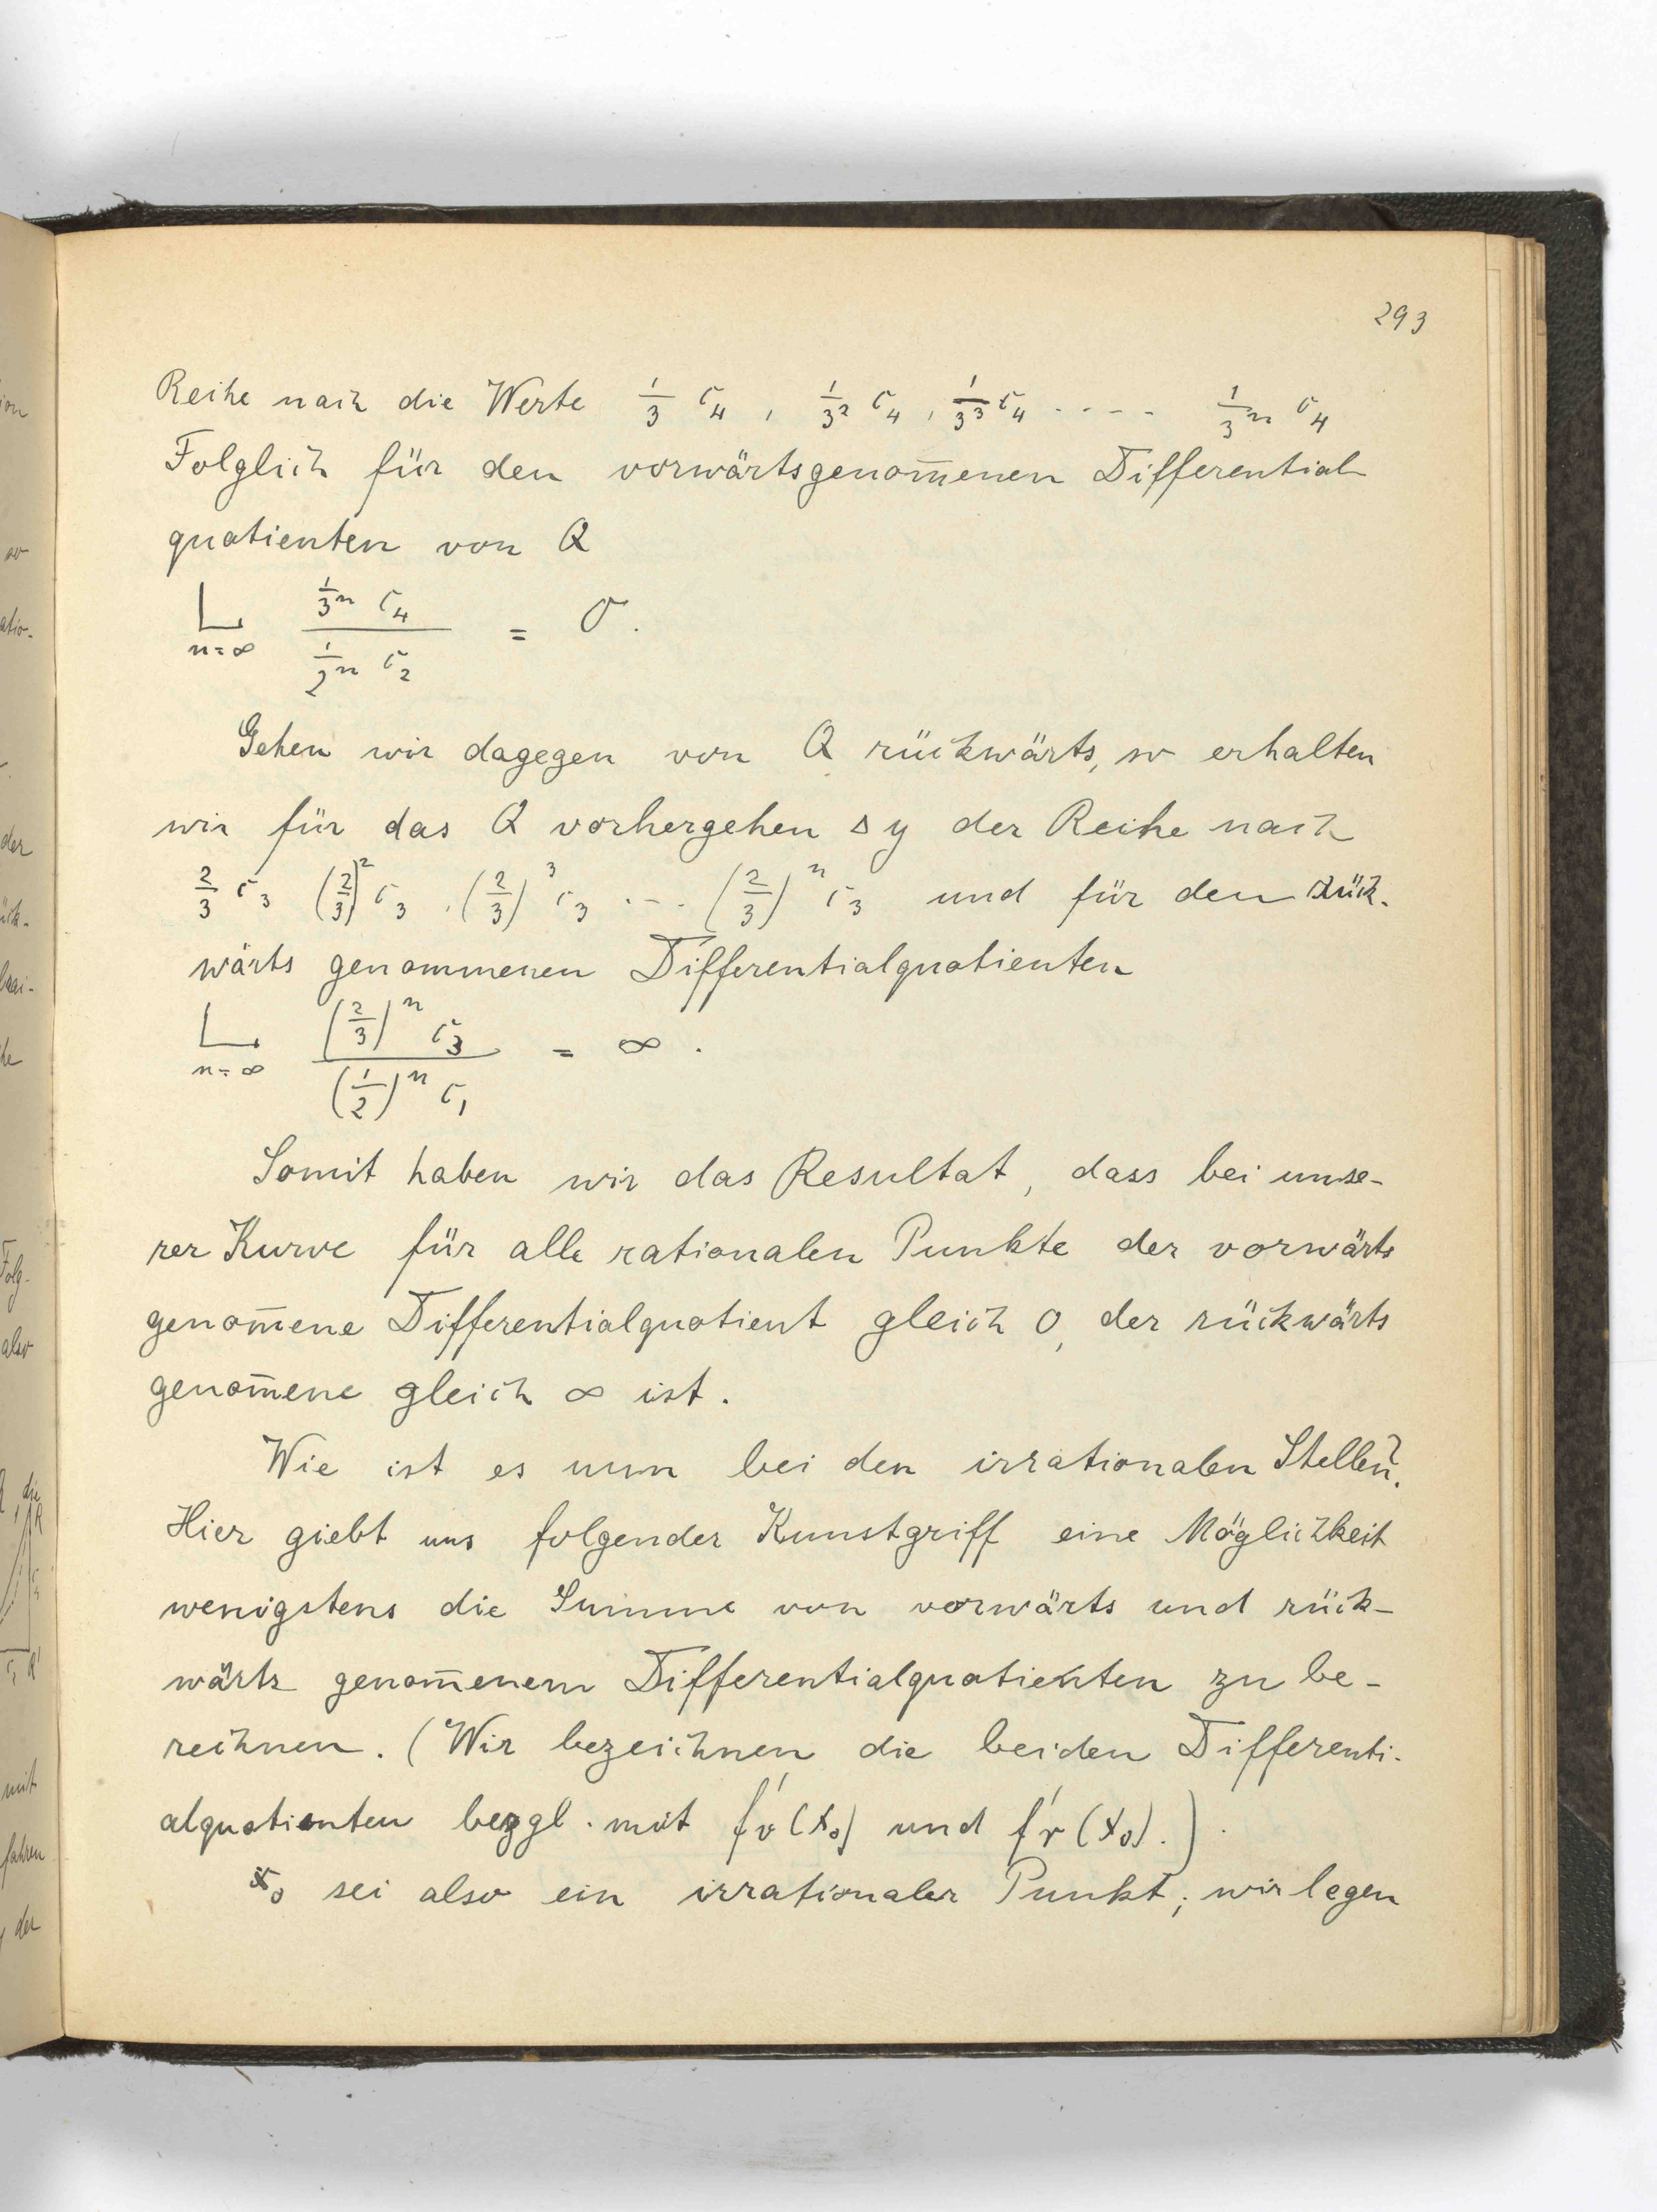 293
Reihe nach die Werte 1/3 c₄, 1/3² c₄, 1/3³ c₄ .... 1/3ⁿ c₄
Folglich für den vorwärtsgenom̅enen Differential
quotienten von Q
L n=∞ (1/3ⁿ c₄)/(1/2ⁿ c₂) = 0.
Gehen wir dagegen von Q rückwärts, so erhalten
wir für das Q vorhergehen Δy der Reihe nach
2/3 c₃ (2/3)² c₃ . (2/3)³ c₃ .... (2/3)ⁿ c₃ und für den rück-
wärts genommenen Differentialquotienten
L n=∞ ((2/3)ⁿ c₃)/((1/2)ⁿ c₁) = ∞.
Somit haben wir das Resultat, dass bei unse-
rer Kurve für alle rationalen Punkte der vorwärts
genom̅ene Differentialquotient gleich 0, der rückwärts
genom̅ene gleich ∞ ist.
Wie ist es nun bei den irrationalen Stellen?
Hier giebt uns folgender Kunstgriff eine Möglichkeit
wenigstens die Summe von vorwärts und rück-
wärts genom̅enem Differentialquotienten zu be-
rechnen. (Wir bezeichnen die beiden Differenti-
alquotienten bezgl. mit f'v(x₀) und f'r(x₀).).
x₀ sei also ein irrationaler Punkt; wir legen